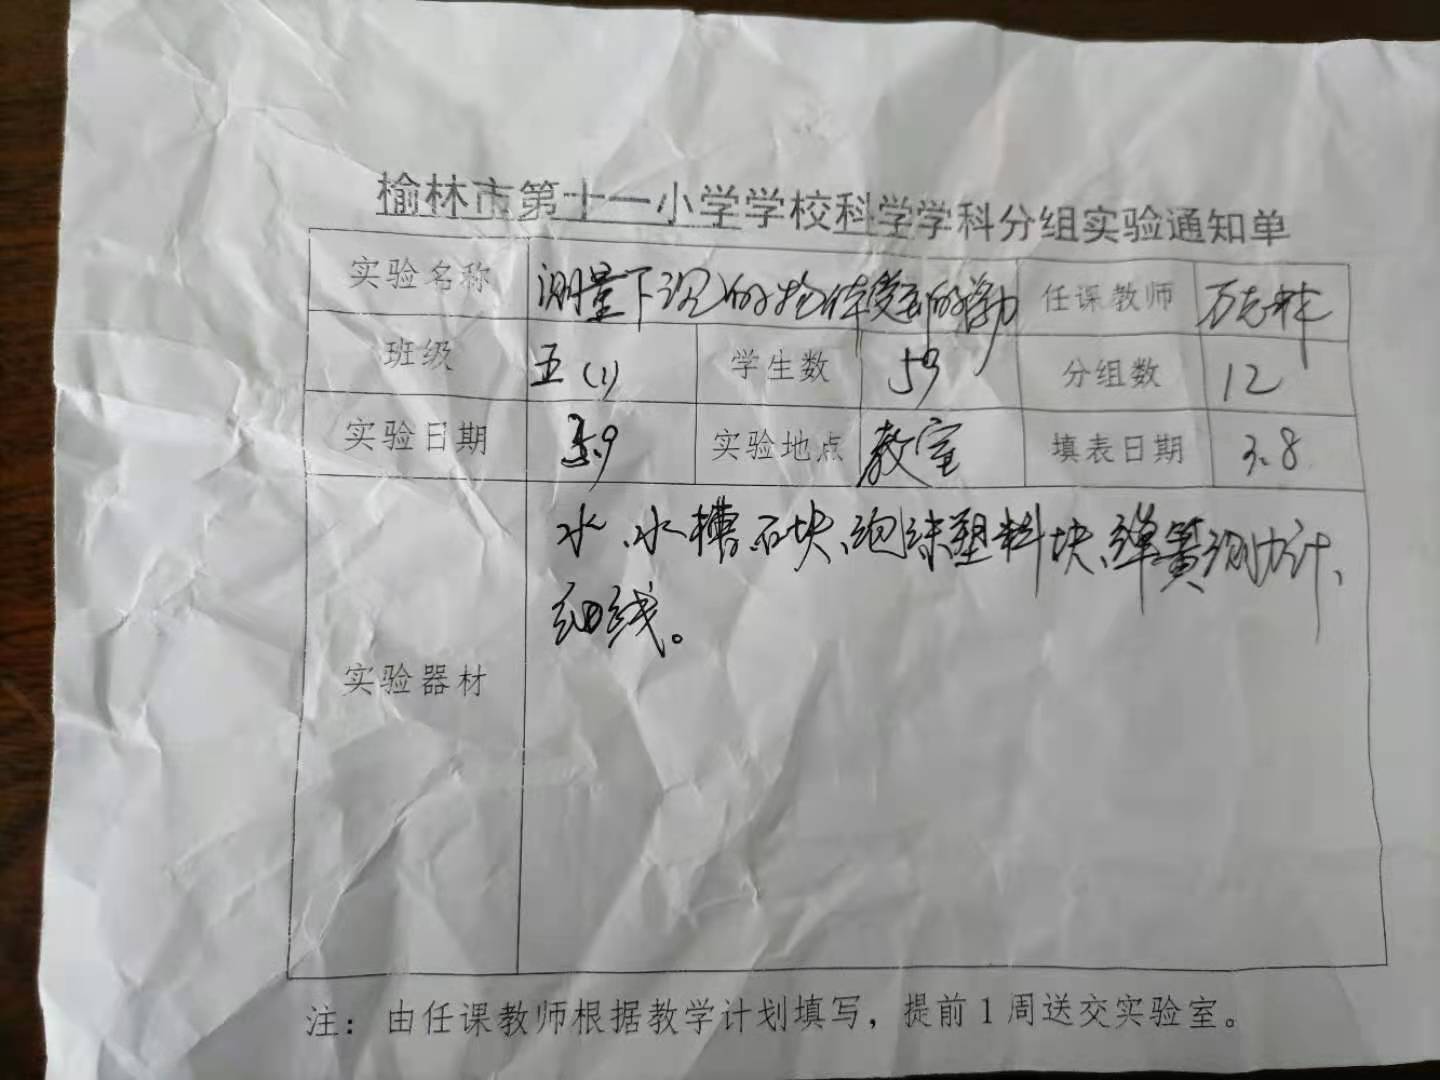 榆林市第十一小学学校科学学科分组实验通知单
实验名称 测量下沉的物体受到的浮力 任课教师
班级 五(1) 学生数 59 分组数 12
实验日期 3.9 实验地点 教室 填表日期 3.8
实验器材 水、水槽、石块、泡沫塑料块、弹簧测力计、
细线。
注：由任课教师根据教学计划填写，提前1周送交实验室。